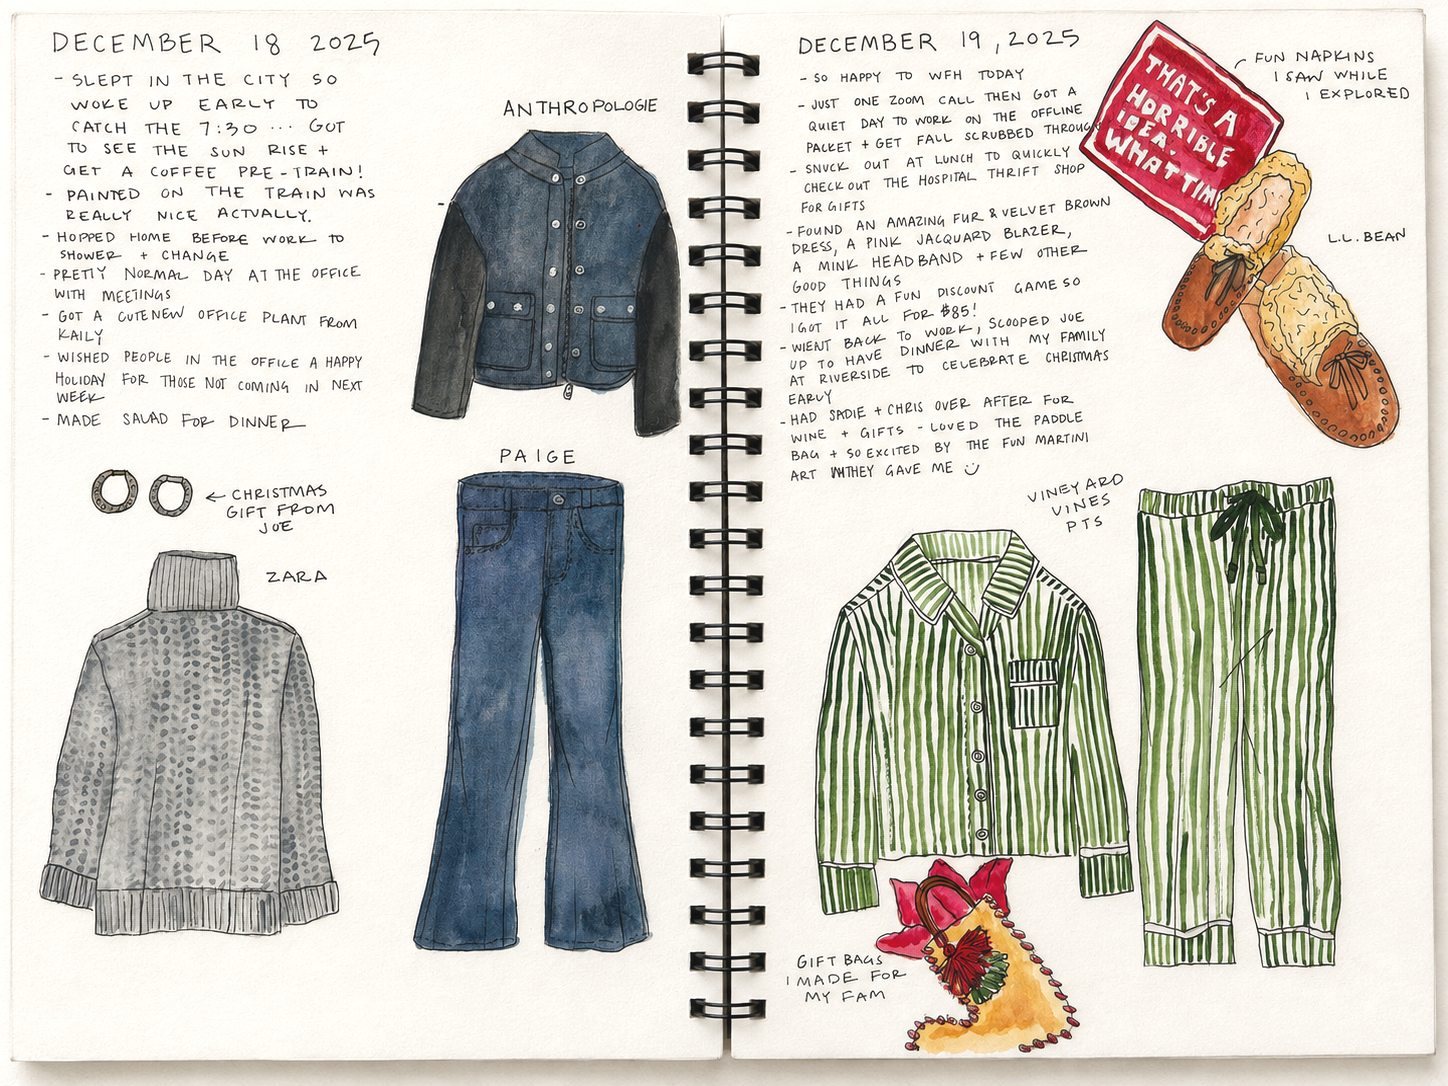 DECEMBER 18 2025
- SLEPT IN THE CITY SO
WOKE UP EARLY TO
CATCH THE 7:30 ... GOT
TO SEE THE SUN RISE +
GET A COFFEE PRE-TRAIN!
- PAINTED ON THE TRAIN WAS
REALLY NICE ACTUALLY.
- HOPPED HOME BEFORE WORK TO
SHOWER + CHANGE
- PRETTY NORMAL DAY AT THE OFFICE
WITH MEETINGS
- GOT A CUTE NEW OFFICE PLANT FROM
KAILY
- WISHED PEOPLE IN THE OFFICE A HAPPY
HOLIDAY FOR THOSE NOT COMING IN NEXT
WEEK
- MADE SALAD FOR DINNER
ANTHROPOLOGIE
PAIGE
← CHRISTMAS
GIFT FROM
JOE
ZARA
DECEMBER 19, 2025
- SO HAPPY TO WFH TODAY
- JUST ONE ZOOM CALL THEN GOT A
QUIET DAY TO WORK ON THE OFFLINE
PACKET + GET FALL SCRUBBED THROUGH
- SNUCK OUT AT LUNCH TO QUICKLY
CHECK OUT THE HOSPITAL THRIFT SHOP
FOR GIFTS
- FOUND AN AMAZING FUR & VELVET BROWN
DRESS, A PINK JACQUARD BLAZER,
A MINK HEADBAND + FEW OTHER
GOOD THINGS
- THEY HAD A FUN DISCOUNT GAME SO
I GOT IT ALL FOR $85!
- WENT BACK TO WORK, SCOOPED JOE
UP TO HAVE DINNER WITH MY FAMILY
AT RIVERSIDE TO CELEBRATE CHRISTMAS
EARLY
- HAD SADIE + CHRIS OVER AFTER FOR
WINE + GIFTS - LOVED THE PADDLE
BAG + SO EXCITED BY THE FUN MARTINI
ART THEY GAVE ME
THAT'S A
HORRIBLE
IDEA.
WHAT TIM
FUN NAPKINS
I SAW WHILE
I EXPLORED
L.L. BEAN
VINEYARD
VINES
PTS
GIFT BAGS
I MADE FOR
MY FAM